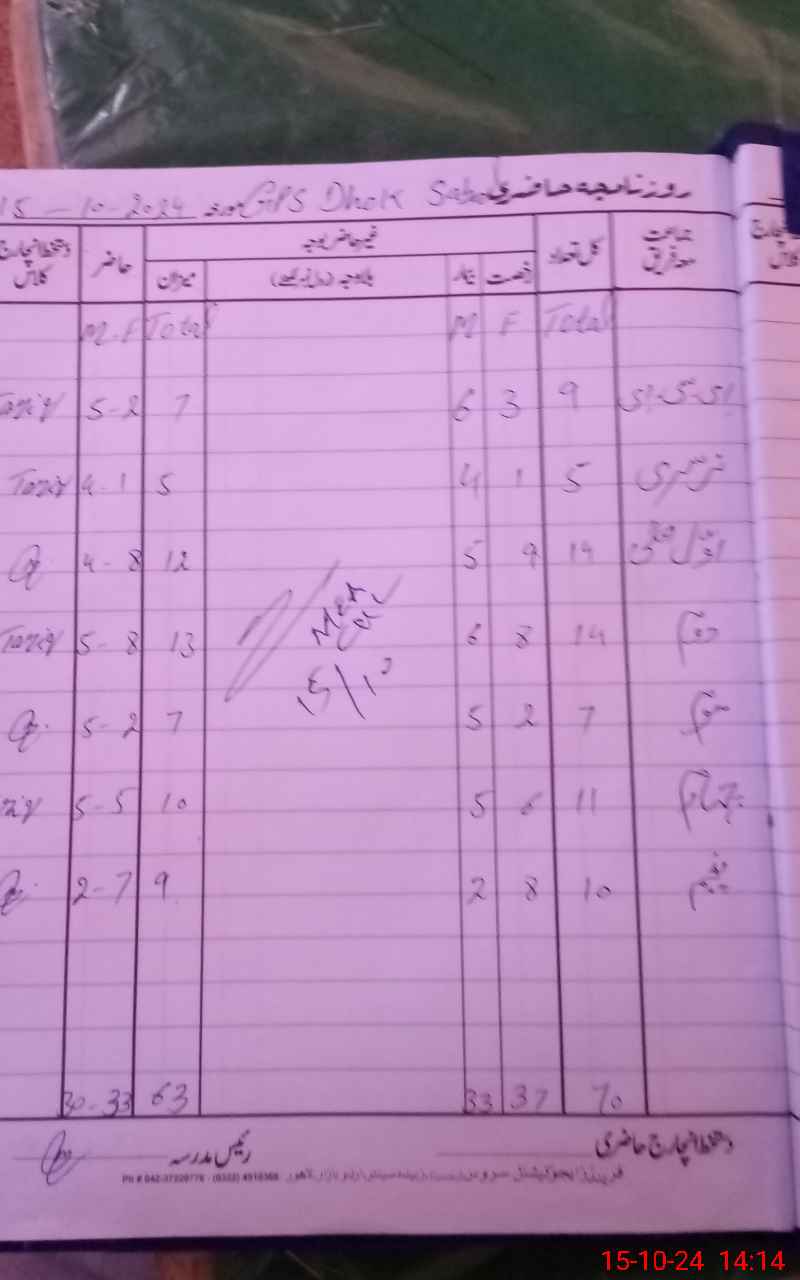 روزنامچہ حاضری GPS Dhok مورخہ 15-10-2024
جماعت معہ فریق کل تعداد غیر حاضر بوجہ حاضر دستخط انچارج کلاس
رخصت بیمار بلاوجہ میزان
Total F M Total M-F
ای-سی-ای 9 3 6 7 5-2 Tariq
نرسری 5 1 4 5 4-1 Tariq
اول 14 9 5 12 4-8
دوئم 14 8 6 13 5-8 Tariq
سوئم 7 2 5 7 5-2
چہارم 11 6 5 10 5-5
پنجم 10 8 2 9 2-7
15/10
70 37 33 63 30-33
دستخط انچارج حاضری رئیس مدرسہ
Ph # 042-37229776
15-10-24 14:14